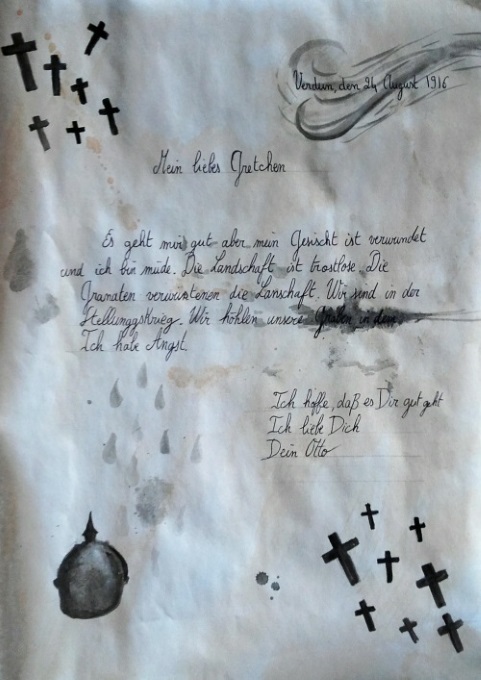 Verdun, den 24 August 1916
Mein liebes Gretchen
Es geht mir gut aber mein Gesischt ist verwundet
und ich bin müde. Die Landschaft ist trostlose. Die
Granaten verwüstenen die Lanschaft. Wir sind in der
Stellunggskrieg. Wir höhlen unsere Gräben in dem
Ich habe Angst.
Ich hoffe, daß es Dir gut geht
Ich liebe Dich
Dein Otto